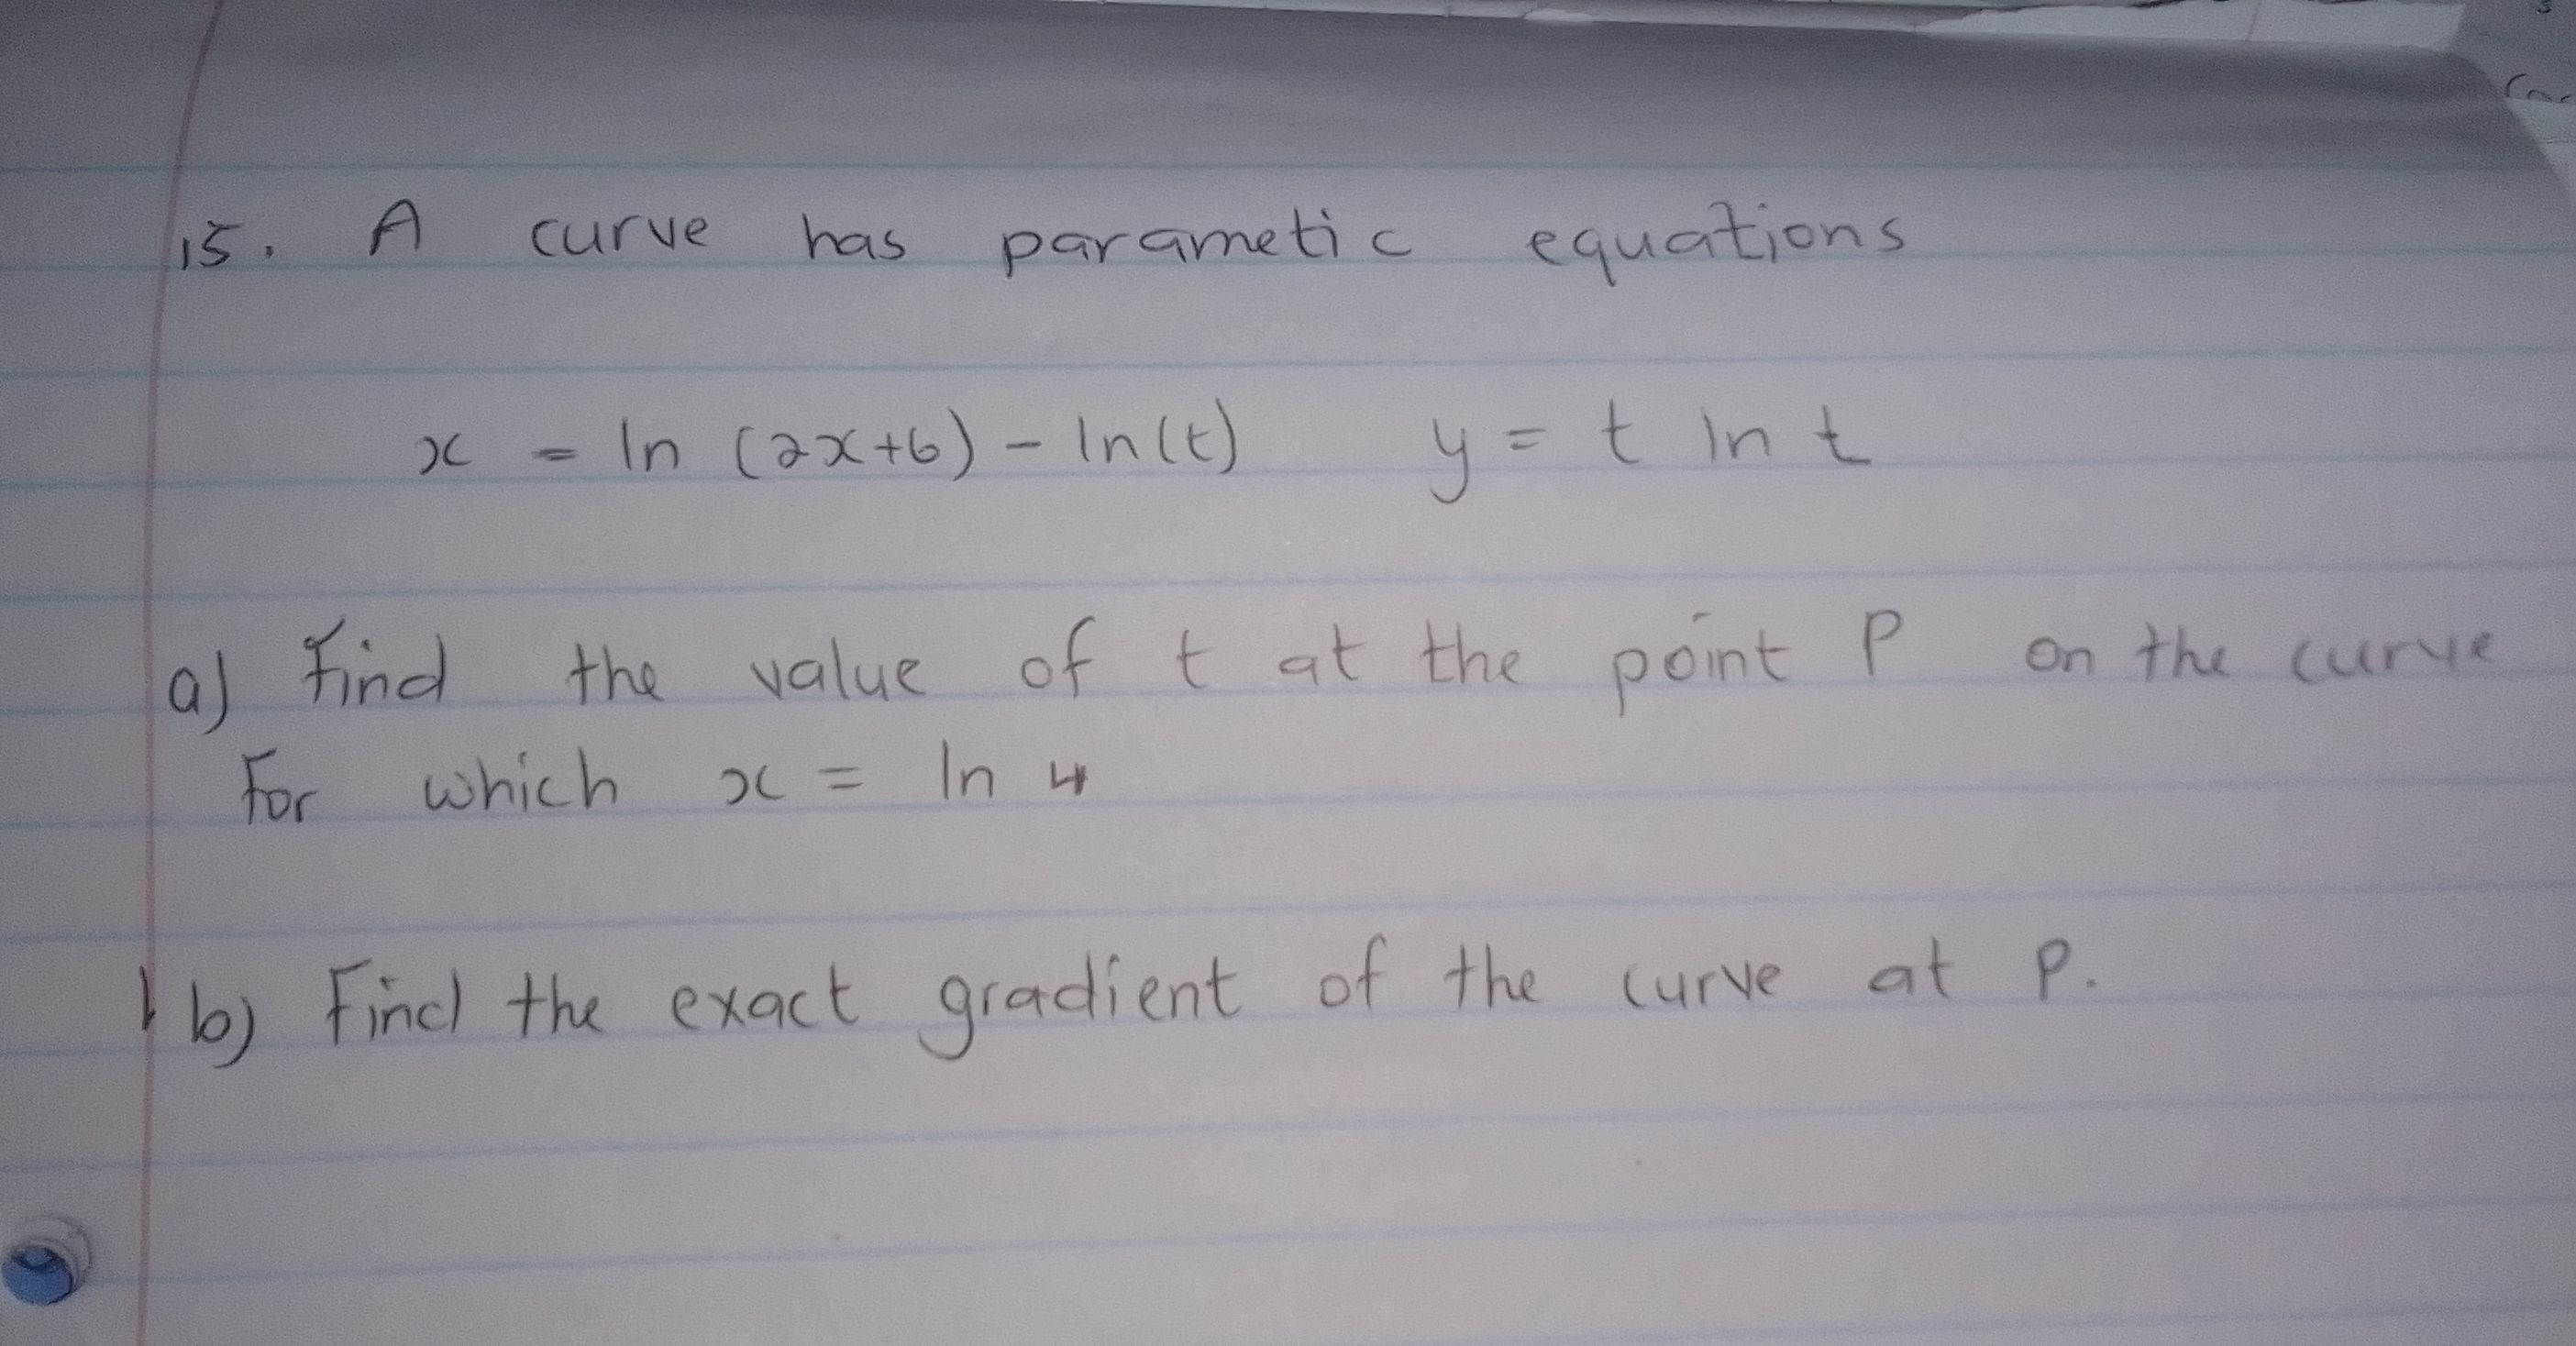 15. A curve has parametic equations
x = ln (2x+6) - ln(t) y = t ln t
a) Find the value of t at the point P on the curve
For which x = ln 4
b) Find the exact gradient of the curve at P.